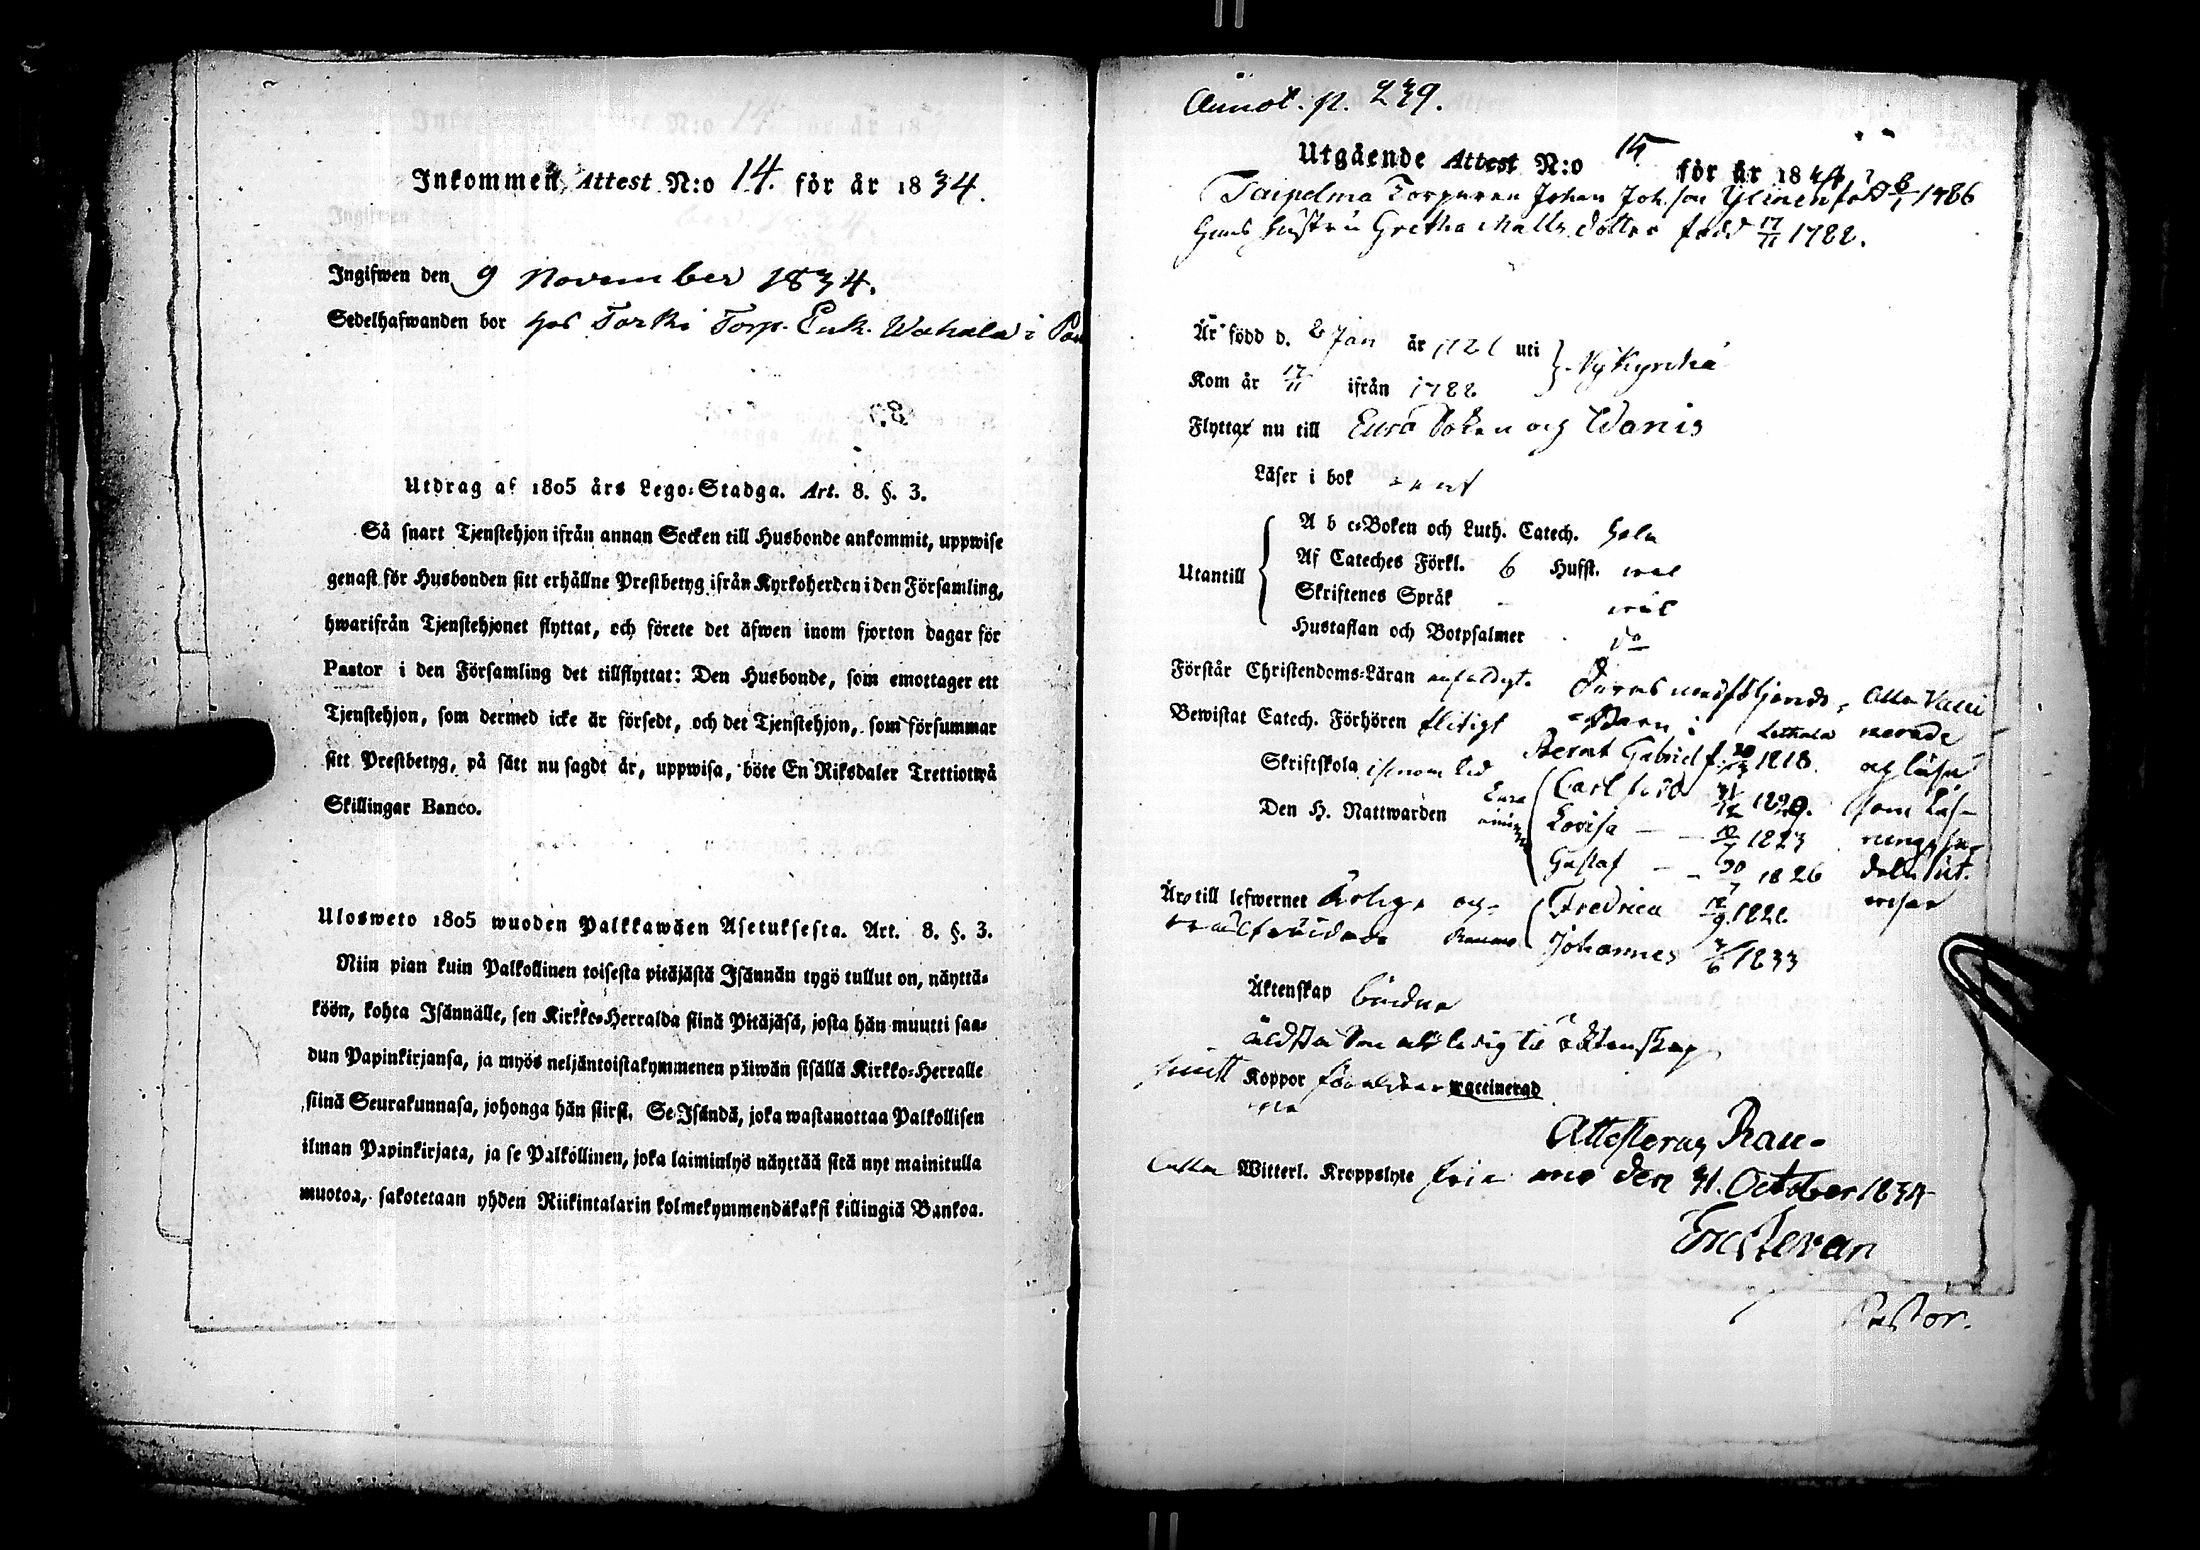 Inkommen Attest N:o 14. för år 1834.
Ingifwen den 9 November 1834.
Sedelhafwanden bor hos Torki Torp. Enk. Wahala i
Utdrag af 1805 års Lego-Stadga. Art. 8. §. 3.
Så snart Tjenstehjon ifrån annan Socken till Husbonde ankommit, uppwise
genast för Husbonden sitt erhållne Prestbetyg ifrån Kyrkoherden i den Församling,
hwarifrån Tjenstehjonet flyttat, och förete det äfwen inom fjorton dagar för
Pastor i den Församling det tillflyttat: Den Husbonde, som emottager ett
Tjenstehjon, som dermed icke är försedt, och det Tjenstehjon, som försummar
sitt Prestbetyg, på sätt nu sagdt är, uppwisa, böte En Riksdaler Trettiotwå
Skillingar Banco.
Ulosweto 1805 wuoden Palkkawäen Asetuksesta. Art. 8. §. 3.
Niin pian kuin Palkollinen toisesta pitäjästä Isännän tygö tullut on, näyttä-
köön, kohta Isännälle, sen Kirkko-Herralda siinä Pitäjäsä, josta hän muutti saa-
dun Papinkirjansa, ja myös neljäntoistakymmenen päiwän sisällä Kirkko-Herralle
siinä Seurakunnasa, johonga hän siirsi. Se Isändä, joka wastanottaa Palkollisen
ilman Papinkirjata, ja se Palkollinen, joka laiminlyö näyttää sitä nyt mainitulla
muotoa, sakotetaan yhden Riikintalarin kolmekymmendäkaksi killingiä Bankoa.
Annot. p. 239.
Utgående Attest N:o för år 18
Torparen Johan Joh. son 1786
Hans hustru Gretha Matts dotter född 17/11 1788.
Är född d. Jan år uti
Kom år 17/11 ifrån 1788 Nykyrka
Flyttar nu till Eura Soken og Wanis
Läser i bok rent
A b c-Boken och Luth. Catech. hela
Utantill Af Cateches Förkl. 6 Hufst. wäl
Skriftenes Språk wäl
Hustaflan och Botpsalmer do
Förstår Christendoms-Läran enfaldigt. Deras medföljande Alla Vacci
Bewistat Catech. Förhören flitigt Barn: nerade
Skriftskola Bernt Gabriel f. 1818. og läsa
Den H. Nattwarden Eura Carl född som Läs-
Lovisa 1823
Gustaf 1826
Äro till lefwernet ärlige og Fredrica wisar
wälfräjdade Johannes 1833
Äktenskap bundne
äldsta Son är ledig til äktenskap
haft Koppor föräldrarne vaccinerad
Attesteras Rau-
Witterl. Kroppslyte frie mo den 31. October 1834
Pastor.